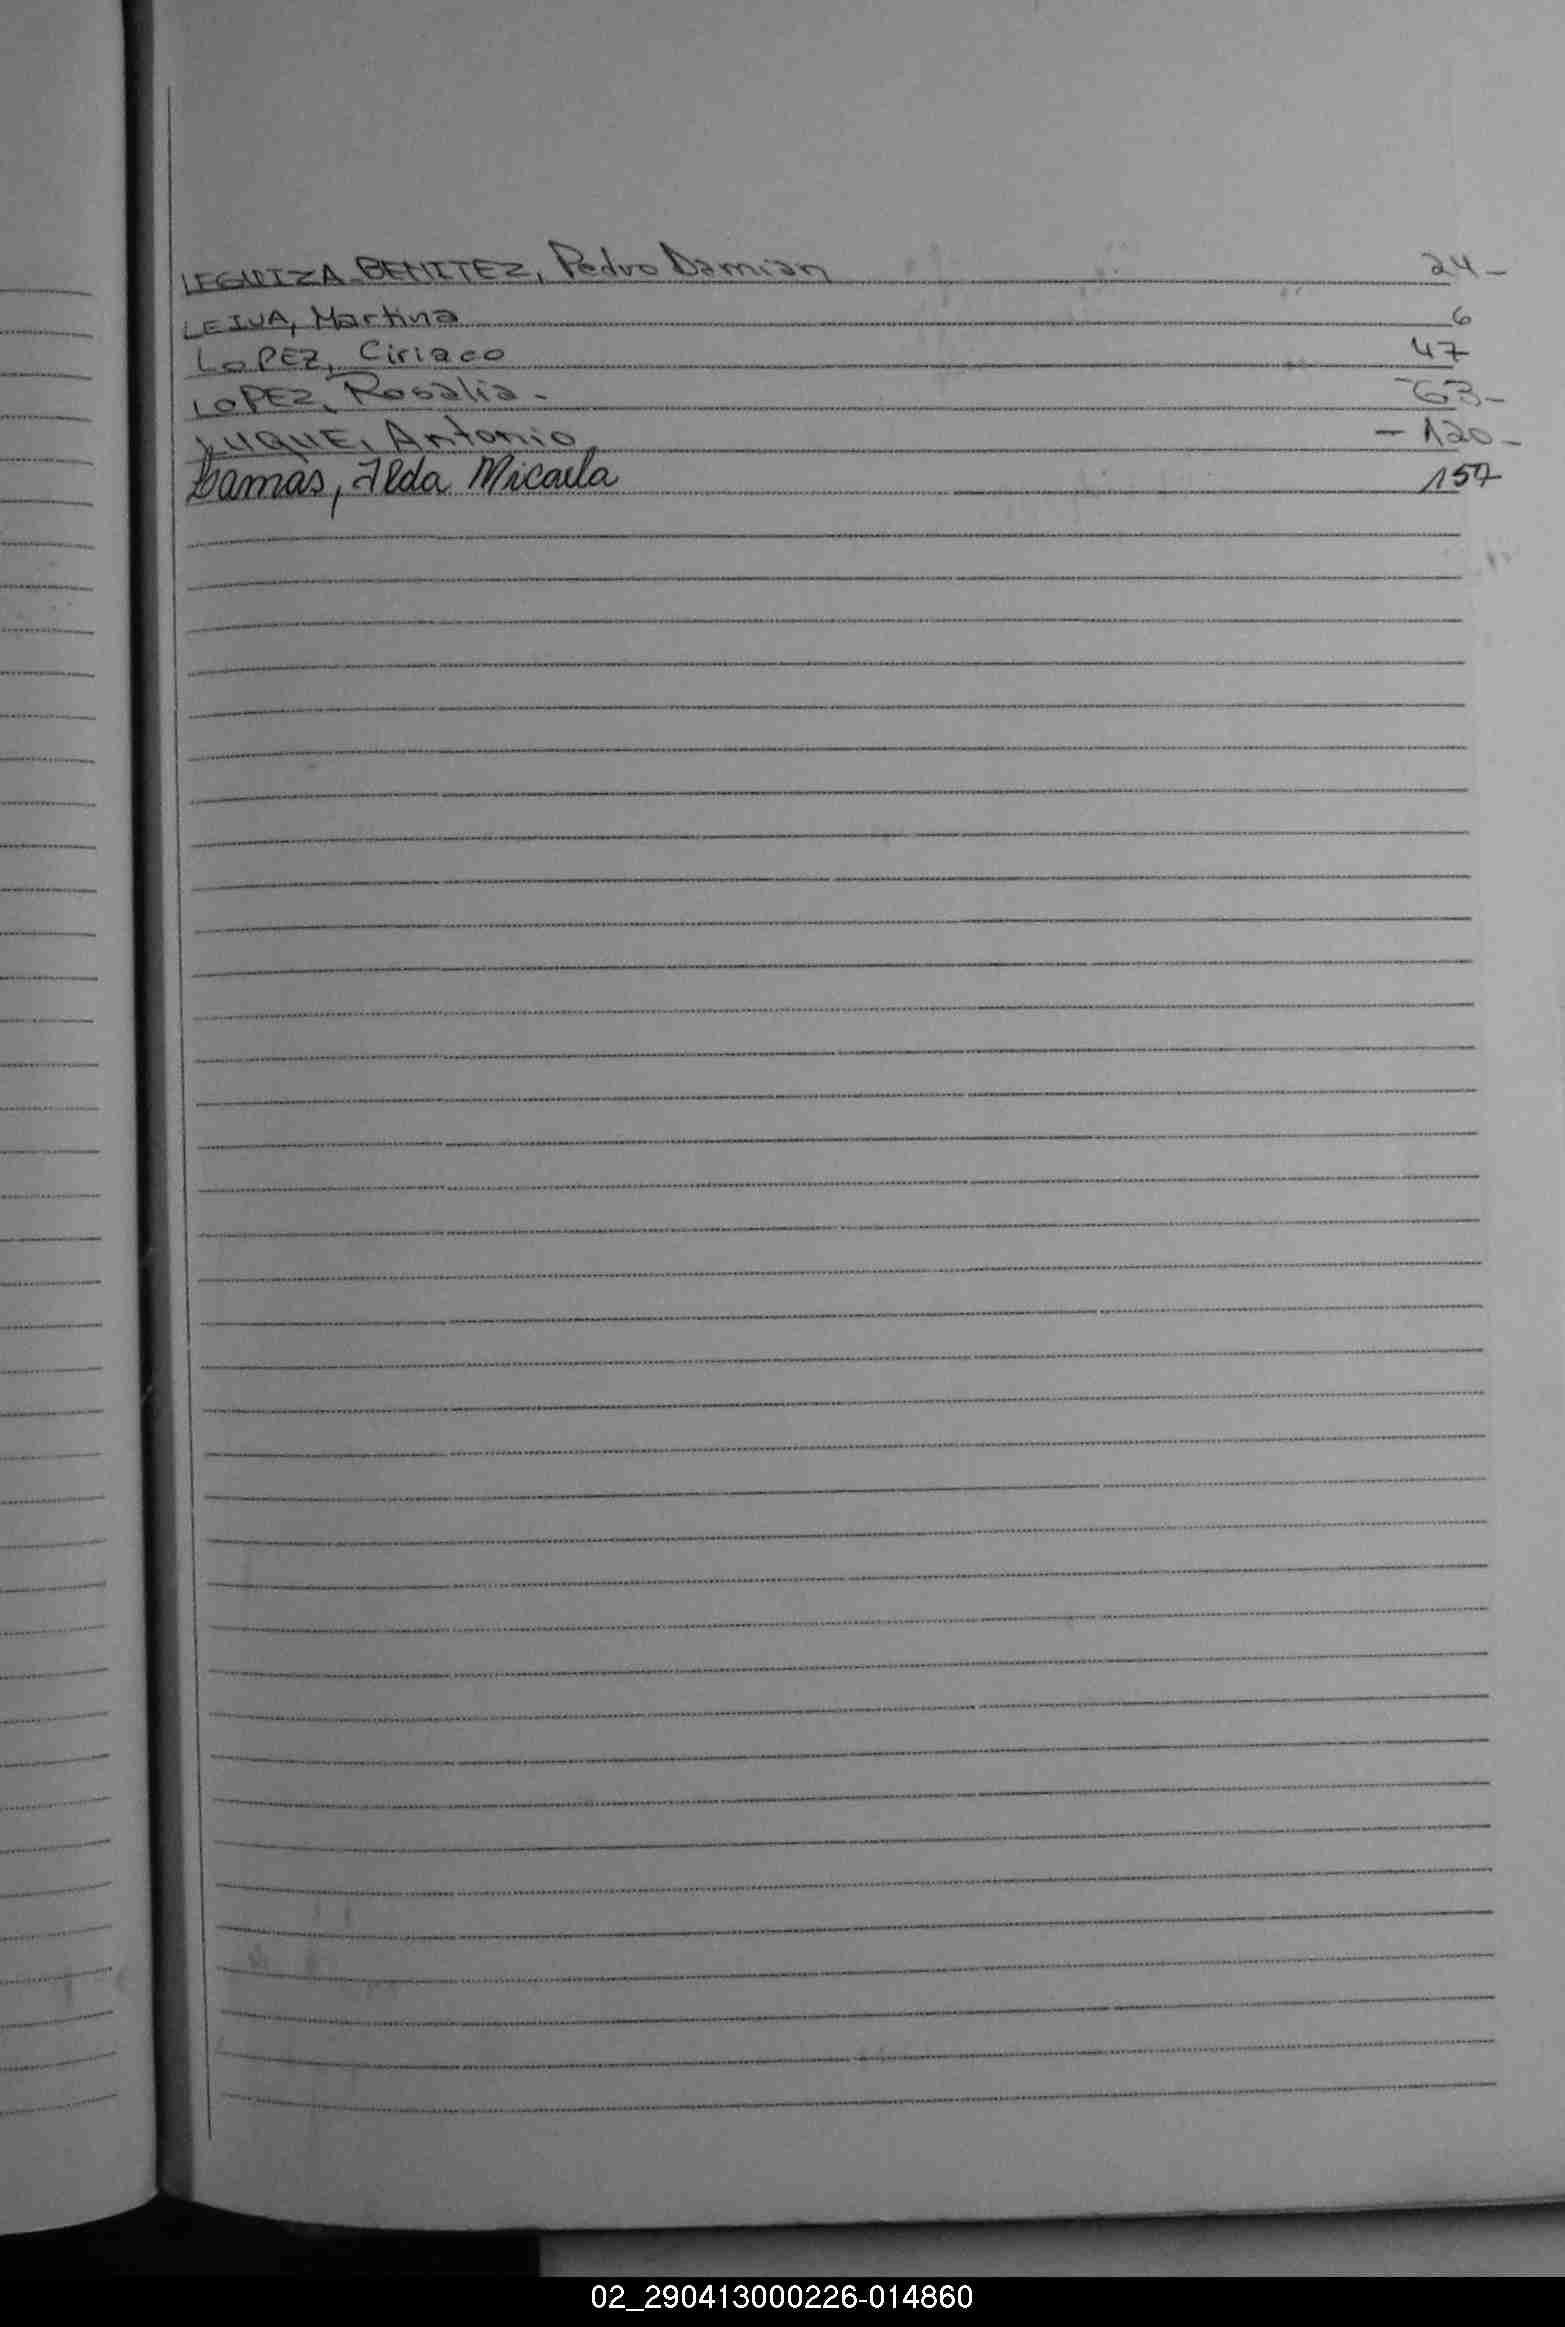 LEGUIZA BENITEZ, Pedro Damian 24-
LEIVA, Martina 6
LOPEZ, Ciriaco 47
LOPEZ, Rosalia. - 63-
LUQUE, Antonio - 120-
Lamas, Ilda Micaela 157
02_290413000226-014860